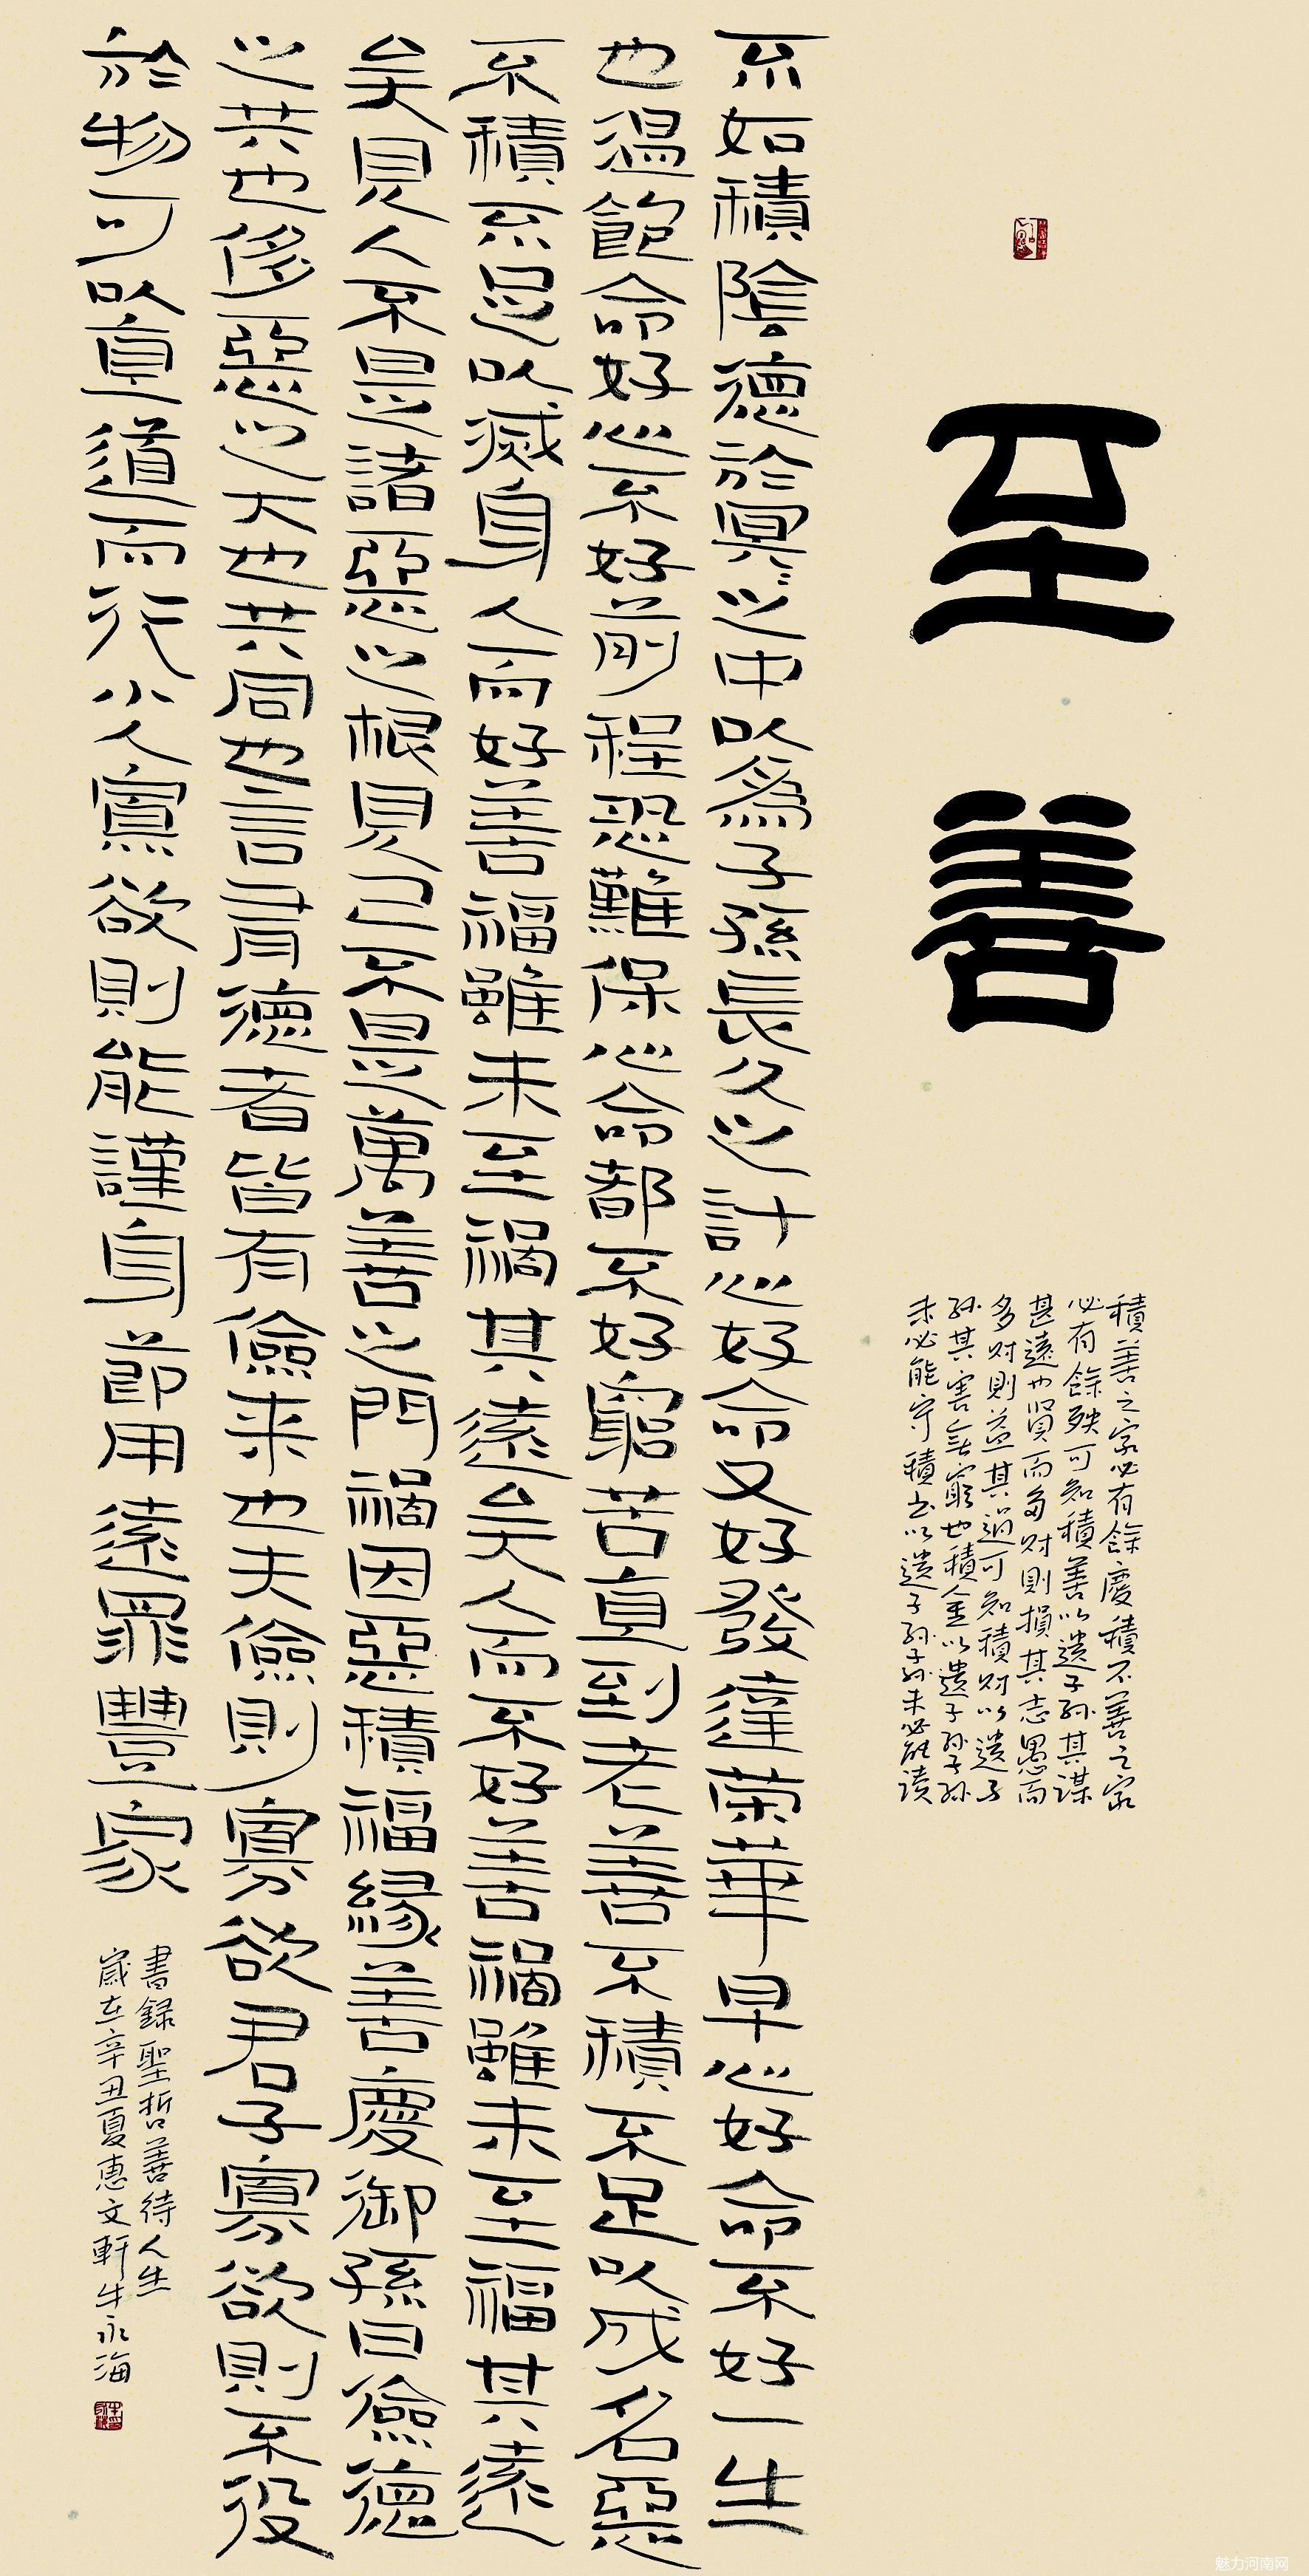 至善
積善之家必有餘慶積不善之家
必有餘殃可知積善以遺子孫其謀
甚遠也賢而多财則損其志愚而
多财則益其過可知積财以遺子
孫其害無窮也積金以遺子孫子孫
未必能守積書以遺子孫子孫未必能讀
不如積陰德於冥〻之中以為子孫長久之計心好命又好發達榮華早心好命不好一生
也溫飽命好心不好前程恐難保心命都不好窮苦直到老善不積不足以成名惡
不積不足以滅身人而好善福雖未至禍其遠矣人而不好善禍雖未至福其遠
矣見人不是諸惡之根見己不是萬善之門禍因惡積福緣善慶御孫曰儉德
之共也侈惡之大也共同也言有德者皆有儉来也夫儉則寡欲君子寡欲則不役
於物可以直道而行小人寡欲則能謹身節用遠罪豐家
書録聖哲善待人生
歲在辛丑夏惠文軒牛永海
魅力河南网